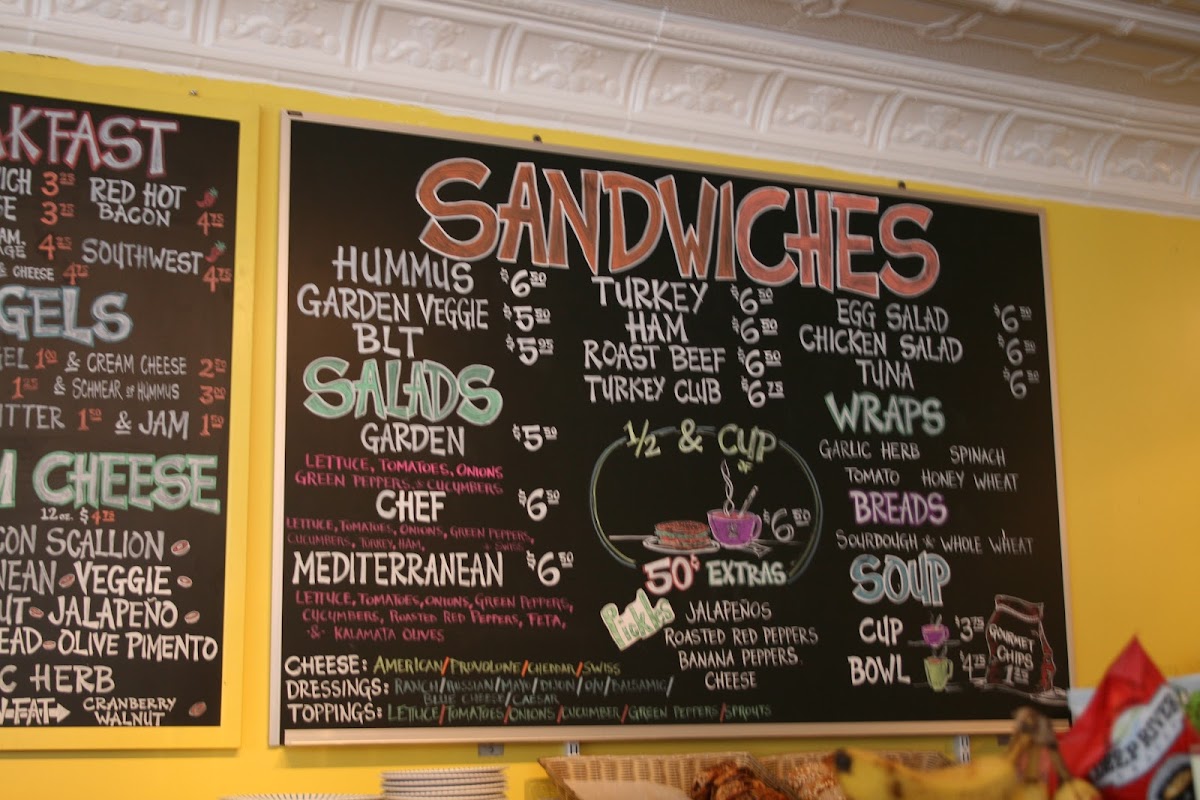 AKFAST
ICH 3 25
RED HOT
BACON 4 75
SE 3 75
AM,
AGE 4 75
SOUTHWEST 4 75
& CHEESE 4 75
GELS
GEL 1 00 & CREAM CHEESE 2 50
1 25 & SCHMEAR OF HUMMUS 3 00
UTTER 1 50 & JAM 1 50
M CHEESE
12 oz. $4 75
CON SCALLION
NEAN VEGGIE
UT - JALAPEÑO
EAD - OLIVE PIMENTO
C HERB
W-FAT
CRANBERRY
WALNUT
SANDWICHES
HUMMUS $6 50
GARDEN VEGGIE $5 50
BLT $5 25
TURKEY $6 50
HAM $6 50
ROAST BEEF $6 50
TURKEY CLUB $6 75
EGG SALAD $6 50
CHICKEN SALAD $6 50
TUNA $6 50
SALADS
GARDEN $5 50
LETTUCE, TOMATOES, ONIONS
GREEN PEPPERS & CUCUMBERS
CHEF $6 50
LETTUCE, TOMATOES, ONIONS, GREEN PEPPERS,
CUCUMBERS, TURKEY, HAM, & SWISS
MEDITERRANEAN $6 50
LETTUCE, TOMATOES, ONIONS, GREEN PEPPERS,
CUCUMBERS, ROASTED RED PEPPERS, FETA,
& KALAMATA OLIVES
1/2 & CUP
OF
$6 50
50¢ EXTRAS
PICKLES
JALAPEÑOS
ROASTED RED PEPPERS
BANANA PEPPERS
CHEESE
WRAPS
GARLIC HERB SPINACH
TOMATO HONEY WHEAT
BREADS
SOURDOUGH & WHOLE WHEAT
SOUP
CUP $3 75
BOWL $4 75
GOURMET
CHIPS
CHEESE: AMERICAN/PROVOLONE/CHEDDAR/SWISS
DRESSINGS: RANCH/RUSSIAN/MAYO/DIJON/O/V/BALSAMIC/
BLUE CHEESE/CAESAR
TOPPINGS: LETTUCE/TOMATOES/ONIONS/CUCUMBER/GREEN PEPPERS/SPROUTS
DEEP RIVER